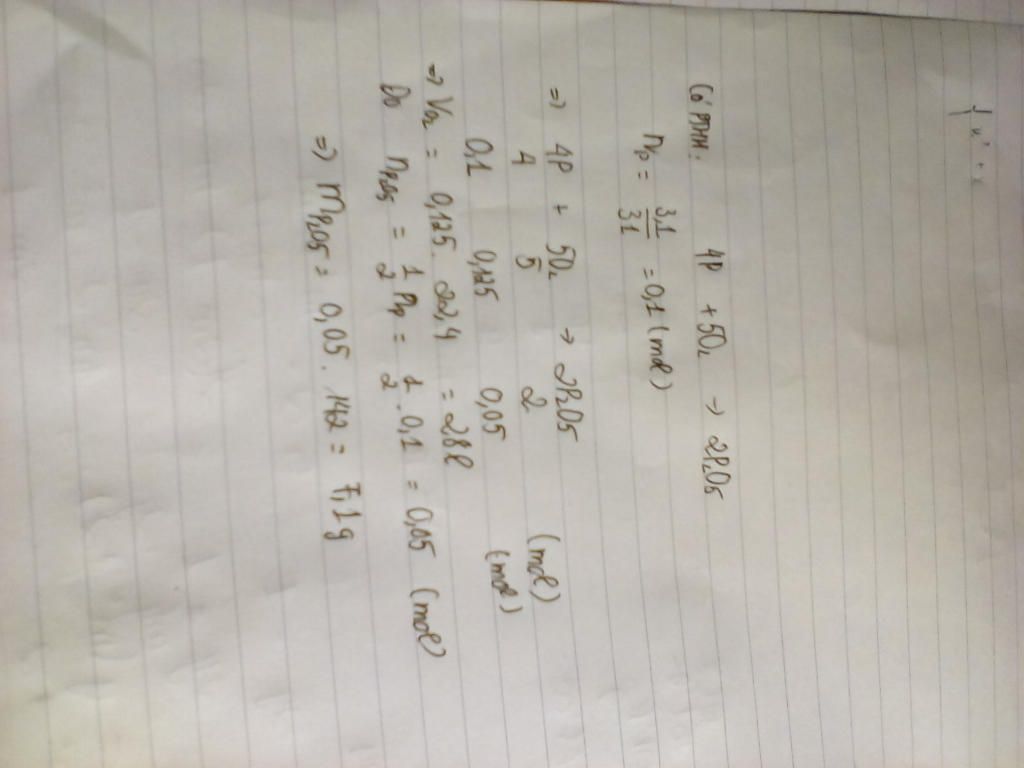 Có PTHH: 4P + 5O₂ → 2P₂O5
nₚ = 3,1/31 = 0,1 (mol)
=> 4P + 5O₂ → 2P₂O5
4 5 2 (mol)
0,1 0,125 0,05 (mol)
=> V₀₂ = 0,125 . 22,4 = 2,8l
Do nP₂O5 = 1/2 nₚ = 1/2 . 0,1 = 0,05 (mol)
=> mP₂O5 = 0,05 . 142 = 7,1g